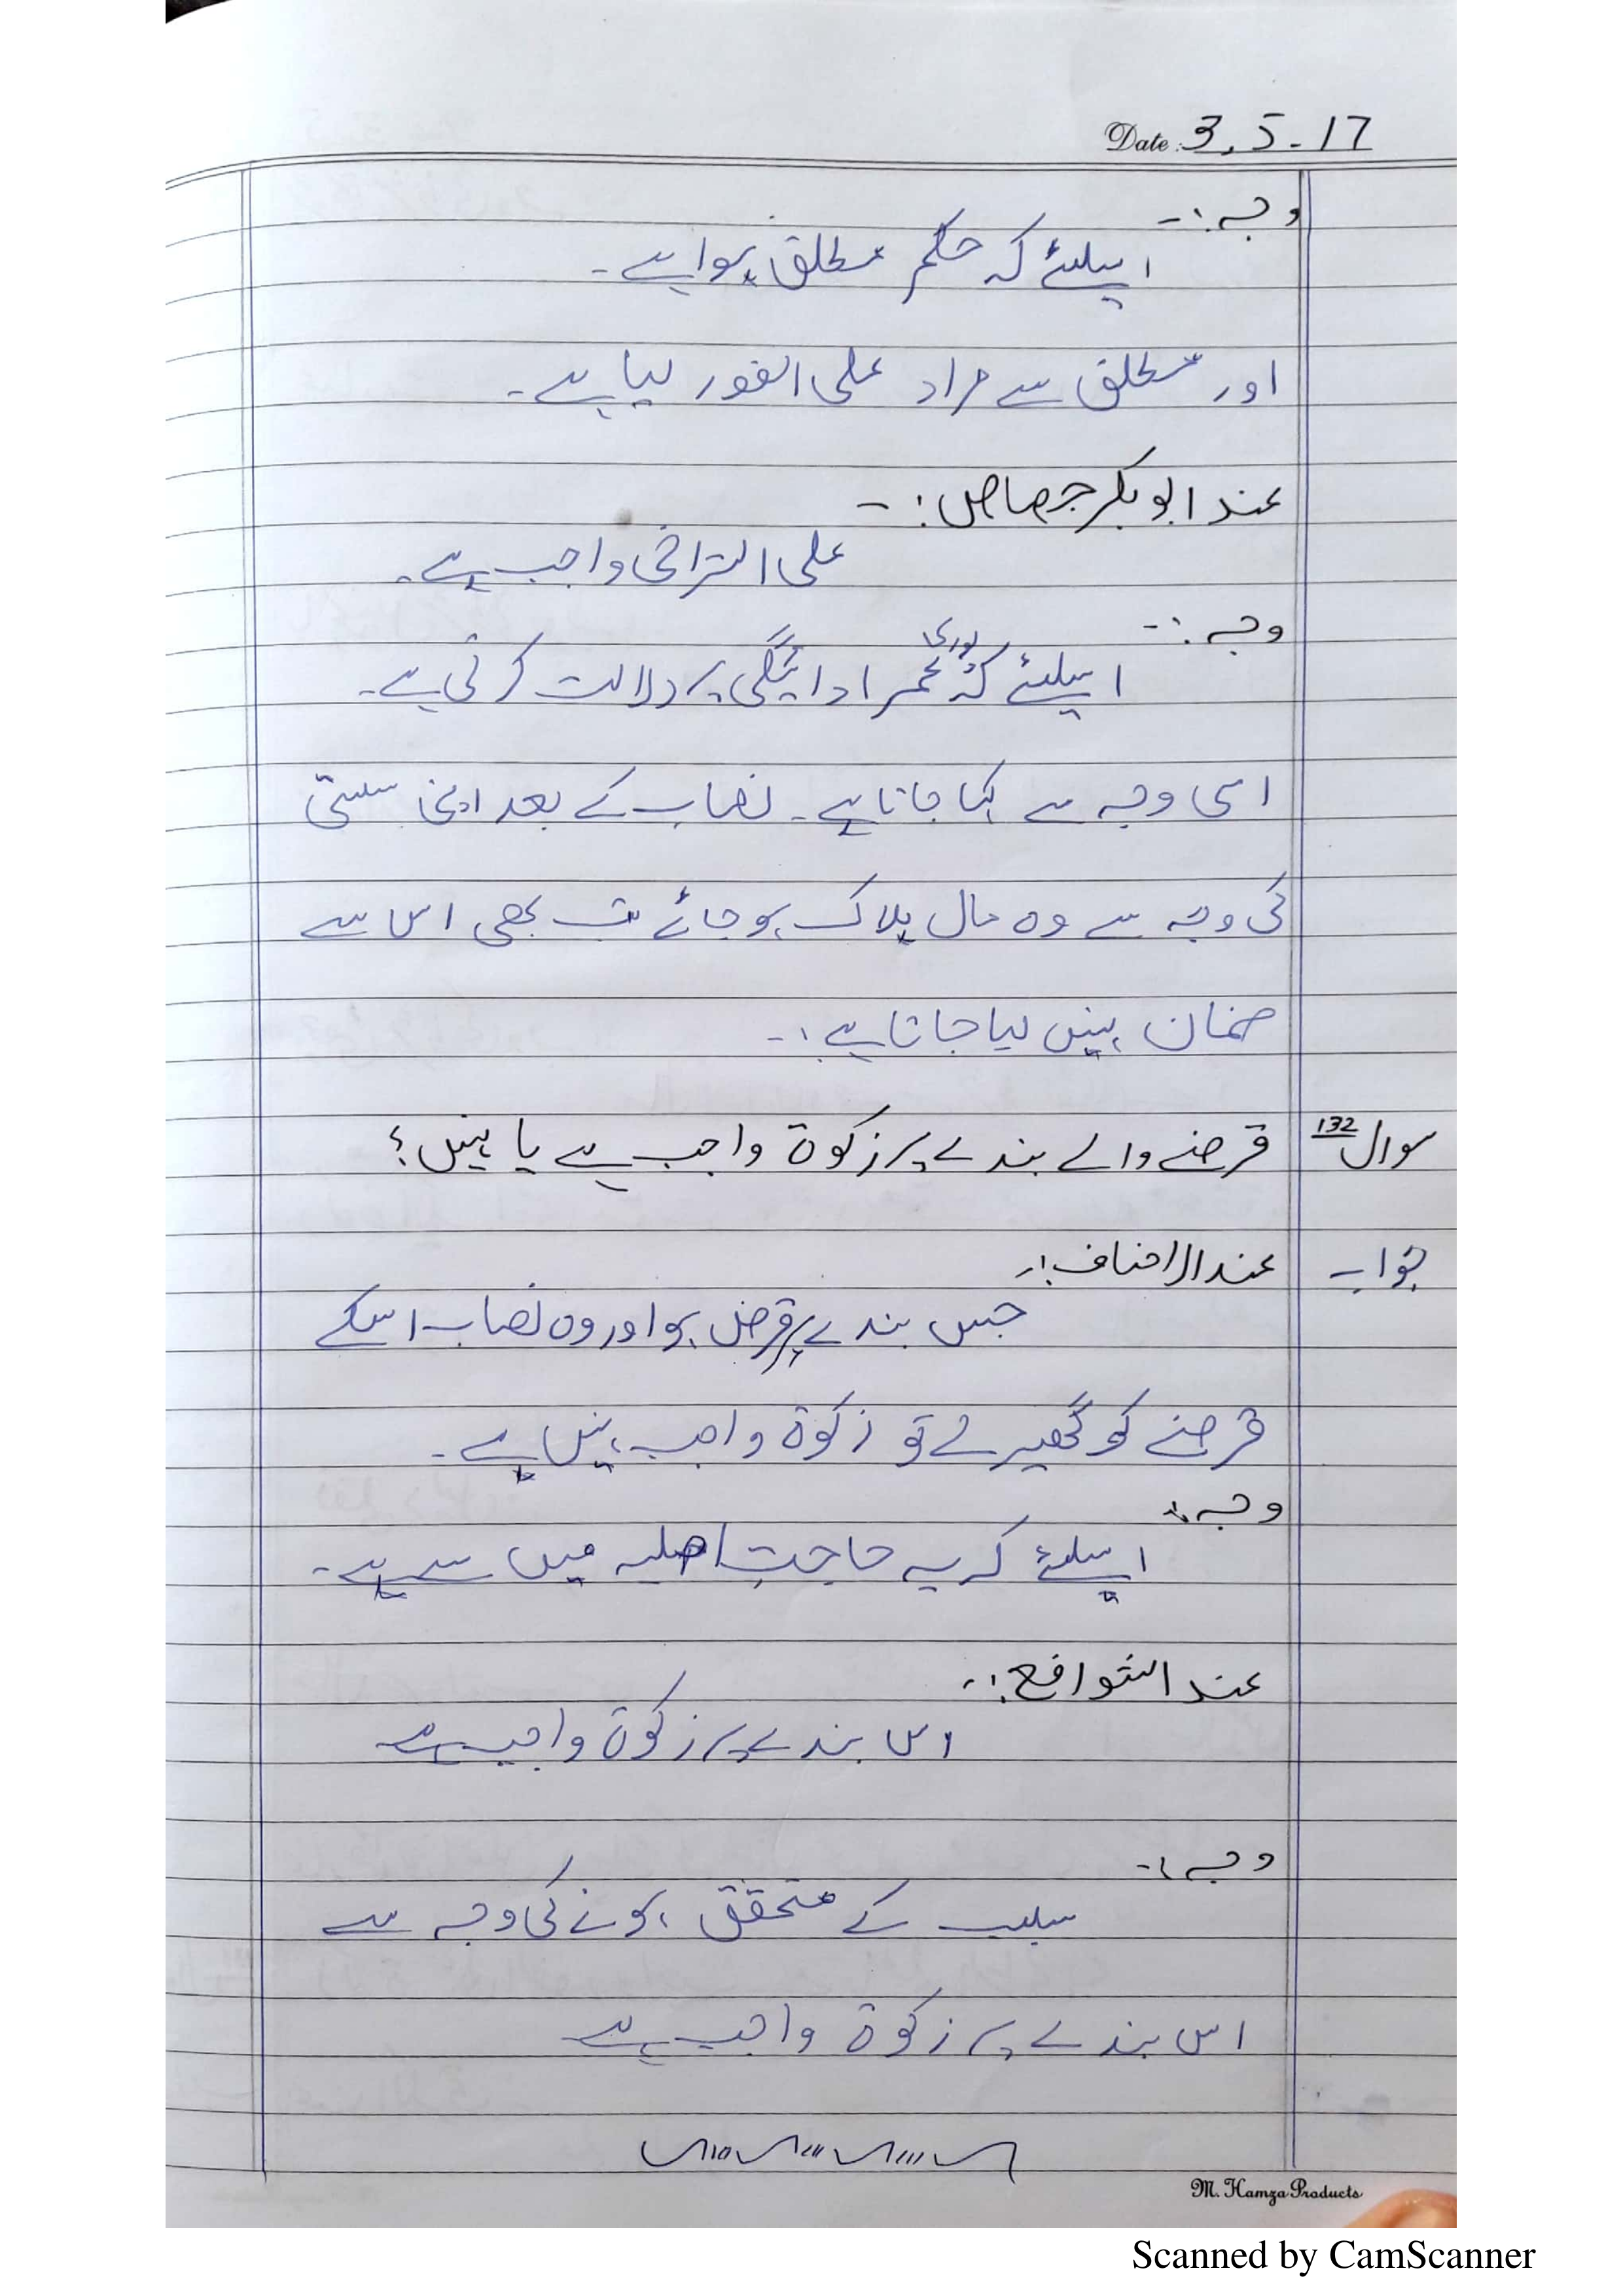 Date: 3.5-17
وجہ :-
اسلئے کہ حکم مطلق ہوا ہے۔
اور مطلق سے مراد علی الفور لیا ہے۔
عند ابوبکر جصاص :-
علی التراخی واجب ہے۔
وجہ :-
اسلئے کہ پوری عمر ادائیگی پر دلالت کرتی ہے۔
اسی وجہ سے کہا جاتا ہے۔ نصاب کے بعد اپنی سستی
کی وجہ سے وہ مال ہلاک ہو جائے تب بھی اس سے
ضمان نہیں لیا جاتا ہے :-
سوال 132 قرضے والے بندے پر زکوۃ واجب ہے یا نہیں؟
جواب عند الاحناف :-
جس بندے پر قرض ہو اور وہ نصاب اسکے
قرضے کو گھیر لے تو زکوۃ واجب نہیں ہے۔
وجہ :-
اسلئے کہ یہ حاجتِ اصلیہ میں سے ہے۔
عند الشوافع :-
اس بندے پر زکوۃ واجب ہے
وجہ :-
سبب کے متحقق ہونے کی وجہ سے
اس بندے پر زکوۃ واجب ہے
M. Hamza Products
Scanned by CamScanner